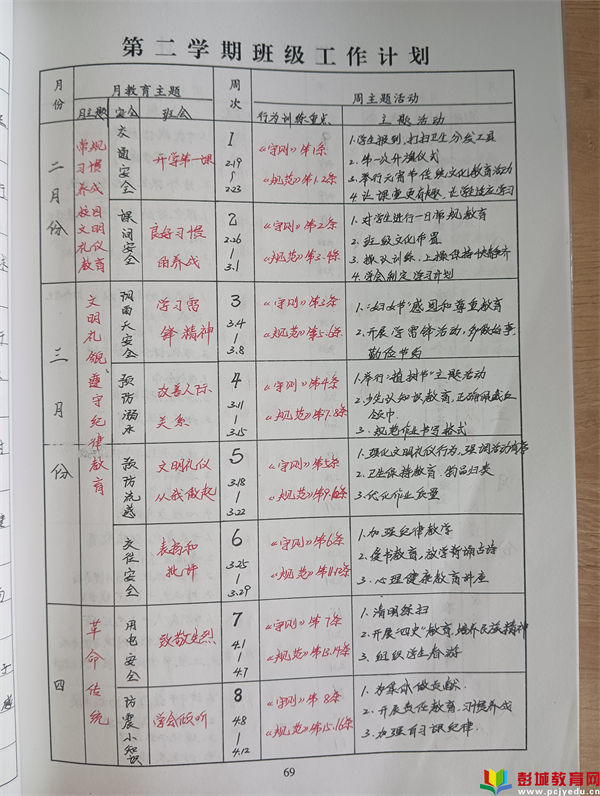 第二学期班级工作计划
月份 月教育主题 周次 周主题活动
月主题 安全 班会 行为训练重点 主题活动
二月份
常规习惯养成
校园文明礼仪教育
交通安全
开学第一课
1
2.19
2.23
《守则》第1条
《规范》第1.2条
1.学生报到,打扫卫生,分发工具
2.第一次升旗仪式
3.举行元宵节传统文化教育活动
4.让课堂更有趣,让学生适应学习
课间安全
良好习惯
的养成
2
2.26
3.1
《守则》第2条
《规范》第3.4条
1.对学生进行一日常规教育
2.班级文化布置
3.操队训练,上操保持快静齐
4.学会制定学习计划
三月份
文明礼貌、遵守纪律教育
阴雨天安全
学习雷
锋精神
3
3.4
3.8
《守则》第3条
《规范》第5.6条
1."妇女节"感恩和尊重教育
2.开展学雷锋活动,多做好事,
勤俭节约
预防溺水
改善人际
关系
4
3.11
3.15
《守则》第4条
《规范》第7.8条
1.举行"植树节"主题活动
2.少先队知识教育,正确佩戴红
领巾.
3.规范作业书写格式
预防流感
文明礼仪
从我做起
5
3.18
3.22
《守则》第5条
《规范》第9.10条
1.强化文明礼仪行为,强调活动内容
2.卫生保持教育,物品归类
3.优化作业质量
交往安全
表扬和
批评
6
3.25
3.29
《守则》第6条
《规范》第11.12条
1.加强纪律教学
2.读书教育,放学前诵古诗
3.心理健康教育讲座
四
革命传统
用电安全
致敬先烈
7
4.1
4.7
《守则》第7条
《规范》第13.14条
1.清明祭扫
2.开展"四史"教育,培养民族精神
3.组织学生春游
防震小知识
学会倾听
8
4.8
4.12
《守则》第8条
《规范》第15.16条
1.为集体做贡献.
2.开展责任教育,习惯养成
3.加强自习课纪律.
69
彭城教育网
www.pcjyedu.cn